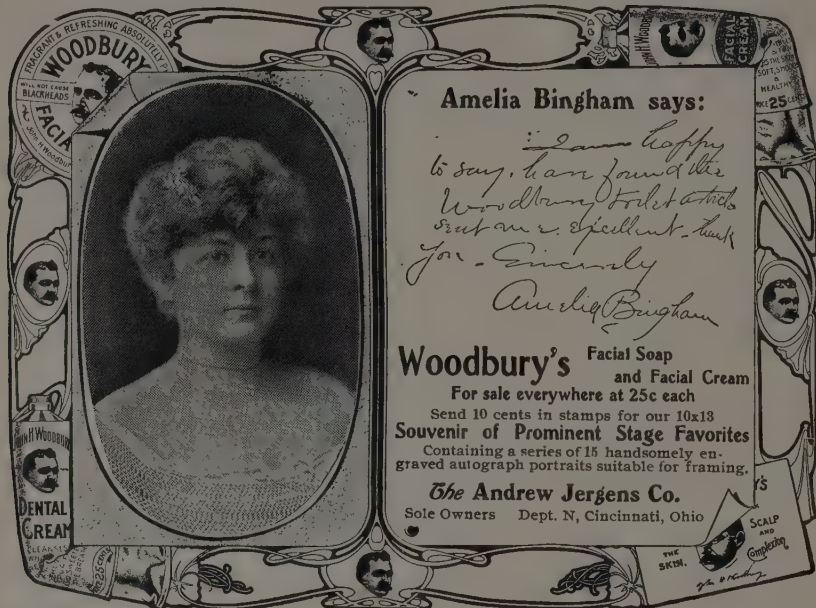 FRAGRANT & REFRESHING ABSOLUTELY P
WOODBURY
WILL NOT CAUSE
BLACKHEADS
FACIA
John H Woodbury
JOHN H WOODBU
FACIAL
CREAM
THE SKIN
SOFT, SMOO
HEALTHY
25 CEN
Amelia Bingham says:
I am happy
to say, have found the
Woodbury toilet articles
sent me excellent. Thank
you. Sincerely
Amelia Bingham
Woodbury's Facial Soap
and Facial Cream
For sale everywhere at 25c each
Send 10 cents in stamps for our 10x13
Souvenir of Prominent Stage Favorites
Containing a series of 15 handsomely en-
graved autograph portraits suitable for framing.
The Andrew Jergens Co.
Sole Owners Dept. N, Cincinnati, Ohio
HN H WOODBU
DENTAL
CREAM
CLEANS
25 CENTS
Y'S
THE
SKIN,
SCALP
AND
Complexion
John H Woodbury